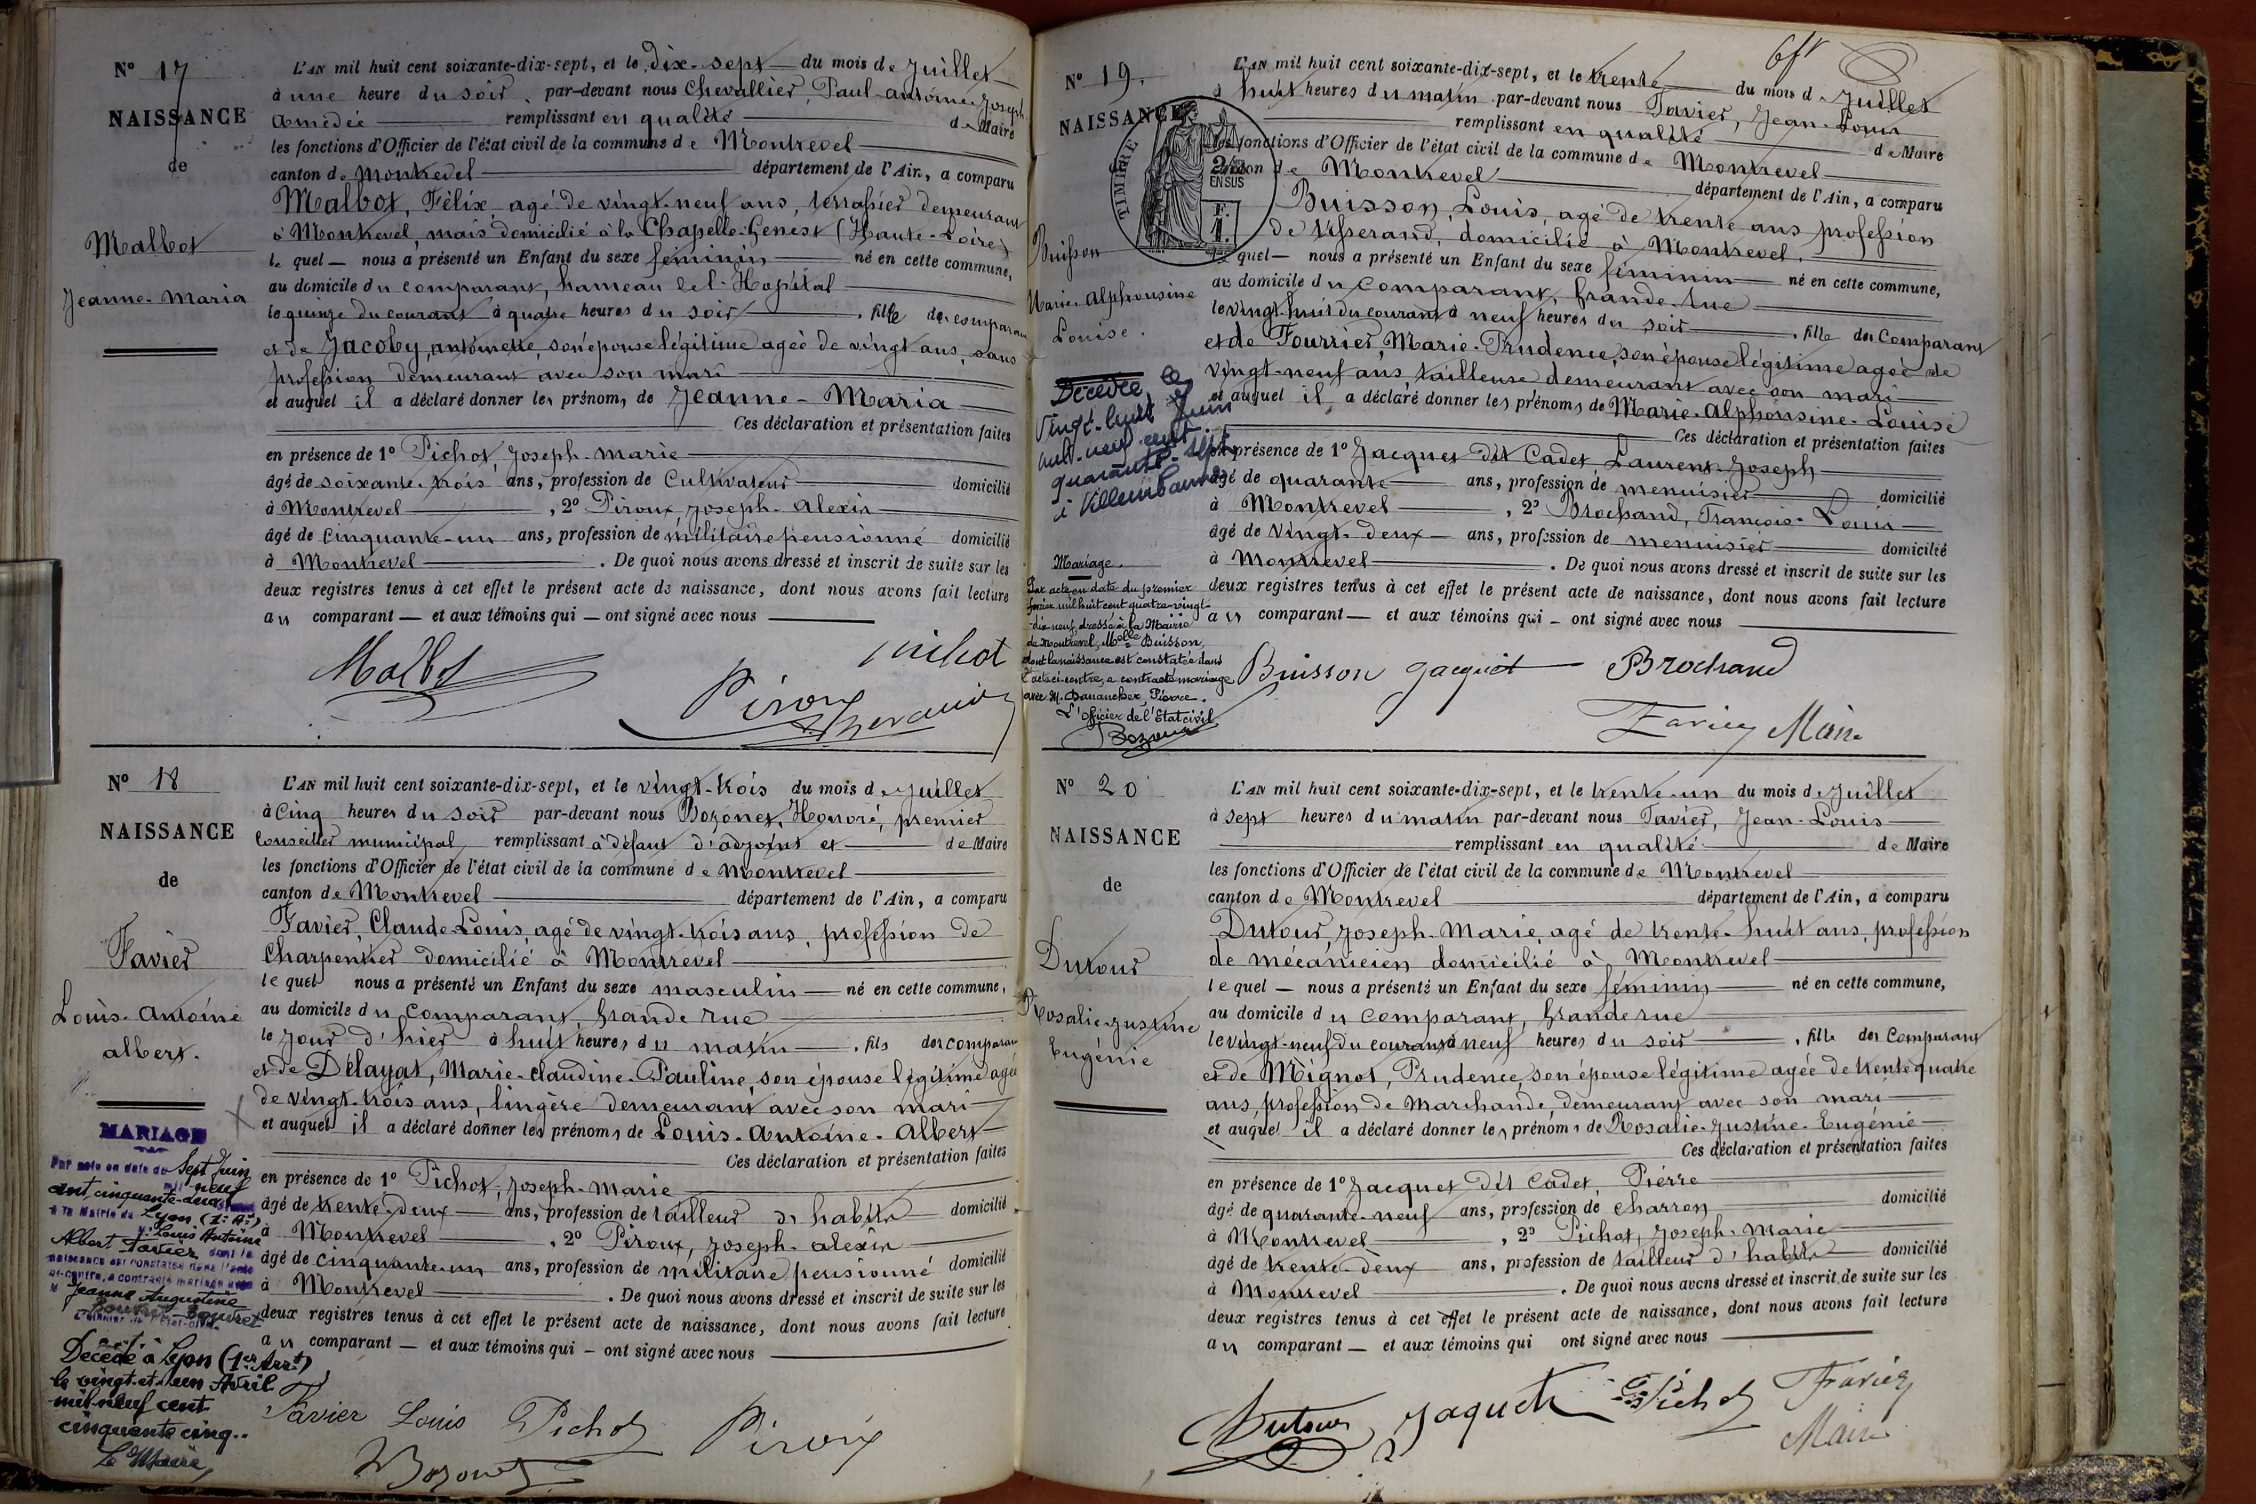 N° 17
NAISSANCE
de
Malbot
Jeanne-Maria
L'AN mil huit cent soixante-dix-sept, et le dix-sept du mois de Juillet
à une heure du soir, par-devant nous Chevallier, Paul-antoine-Joseph
amédée remplissant en qualité de Maire
les fonctions d'Officier de l'état civil de la commune de Montrevel
canton de Montrevel département de l'Ain, a comparu
Malbot, Félix, agé de vingt-neuf ans, terrassier demeurant
à Montrevel, mais domicilié à la Chapelle-Genest (Haute-Loire)
le quel — nous a présenté un Enfant du sexe féminin né en cette commune,
au domicile du comparant, hameau de l'Hopital
le quinze du courant à quatre heures du soir, fille du comparant
et de Jacoby, antoinette, son épouse légitime agée de vingt ans, sans
profession demeurant avec son mari
et auquel il a déclaré donner les prénoms de Jeanne-Maria
Ces déclaration et présentation faites
en présence de 1° Pichot, Joseph-marie
âgé de soixante-trois ans, profession de Cultivateur domicilié
à Montrevel, 2° Piroux, Joseph-alexis
âgé de Cinquante-un ans, profession de militaire pensionné domicilié
à Montrevel. De quoi nous avons dressé et inscrit de suite sur les
deux registres tenus à cet effet le présent acte de naissance, dont nous avons fait lecture
au comparant — et aux témoins qui — ont signé avec nous
Malbot Pichot
Piroux
N° 18
NAISSANCE
de
Favier
Louis-antoine
albert.
L'AN mil huit cent soixante-dix-sept, et le vingt-trois du mois de Juillet
à Cinq heures du soir par-devant nous Bozonet, Honoré, premier
Conseiller municipal remplissant à défaut d'adjoint et de Maire
les fonctions d'Officier de l'état civil de la commune de Montrevel
canton de Montrevel département de l'Ain, a comparu
Favier, Claude-Louis, agé de vingt-trois ans, profession de
Charpentier domicilié à Montrevel
le quel nous a présenté un Enfant du sexe masculin né en cette commune,
au domicile du Comparant, Grande rue
le jour d'hier à huit heures du matin, fils du comparant
et de Délayat, Marie-claudine-Pauline, son épouse légitime agée
de vingt-trois ans, lingère demeurant avec son mari
et auquel il a déclaré donner les prénoms de Louis-Antoine-Albert
Ces déclaration et présentation faites
en présence de 1° Pichot, Joseph-Marie
âgé de trente-deux ans, profession de tailleur d'habits domicilié
à Montrevel, 2° Piroux, Joseph-alexis
âgé de cinquante-un ans, profession de militaire pensionné domicilié
à Montrevel. De quoi nous avons dressé et inscrit de suite sur les
deux registres tenus à cet effet le présent acte de naissance, dont nous avons fait lecture
au comparant — et aux témoins qui — ont signé avec nous
MARIAGE
Par acte en date du Sept Juin
mil neuf
cent cinquante-deux
à la Mairie de Lyon (1er Ar.)
M. Louis Antoine
Albert Favier dont la
naissance est constatée dans l'acte
ci-contre, a contracté mariage avec
M Jeanne Augustine
L'Officier de l'Etat-civil
Décédé à Lyon (1er Arrt)
le vingt-et-un Avril
mil neuf cent
cinquante cinq..
Le Maire,
Favier Louis Pichot Piroux
Bozonet
N° 19.
NAISSANCE
TIMBRE
2/10
EN SUS
Buisson
Marie-Alphonsine
Louise.
L'AN mil huit cent soixante-dix-sept, et le trente du mois de Juillet
à huit heures du matin par-devant nous Favier, Jean-Louis
remplissant en qualité de Maire
les fonctions d'Officier de l'état civil de la commune de Montrevel
canton de Montrevel département de l'Ain, a comparu
Buisson, Louis, agé de trente ans profession
de tisserand, domicilié à Montrevel,
le quel — nous a présenté un Enfant du sexe féminin né en cette commune,
au domicile du Comparant, Grande-rue
le vingt-huit du courant à neuf heures du soir, fille du Comparant
et de Fourrier, Marie-Prudence, son épouse légitime agée de
vingt-neuf ans, tailleuse demeurant avec son mari
et auquel il a déclaré donner les prénoms de Marie-Alphonsine-Louise
Ces déclaration et présentation faites
en présence de 1° Jacquet dit Cadet, Laurent-Joseph
âgé de quarante ans, profession de menuisier domicilié
à Montrevel, 2° Brochand, François-Louis
âgé de vingt-deux ans, profession de menuisier domicilié
à Montrevel. De quoi nous avons dressé et inscrit de suite sur les
deux registres tenus à cet effet le présent acte de naissance, dont nous avons fait lecture
au comparant — et aux témoins qui — ont signé avec nous
Décédée le
vingt-huit Juin
mil-neuf cent
quarante-sept
à Villeurbanne
Mariage.
Par acte en date du premier
février mil huit cent quatre-vingt-
dix-neuf, dressé à la Mairie
de Montrevel, Melle Buisson,
dont la naissance est constatée dans
l'acte ci-contre, a contracté mariage
avec M. Dananchez, Pierre.
L'Officier de l'Etat civil
Buisson Jacquet Brochand
Favier Maire
N° 20
NAISSANCE
de
Dutour
Rosalie-Justine
Eugénie
L'AN mil huit cent soixante-dix-sept, et le trente-un du mois de Juillet
à sept heures du matin par-devant nous Favier, Jean-Louis
remplissant en qualité de Maire
les fonctions d'Officier de l'état civil de la commune de Montrevel
canton de Montrevel département de l'Ain, a comparu
Dutour, Joseph-Marie, agé de trente-huit ans, profession
de mécanicien domicilié à Montrevel
le quel — nous a présenté un Enfant du sexe féminin né en cette commune,
au domicile du Comparant, Grande rue
le vingt-neuf du courant à neuf heures du soir, fille du Comparant
et de Mignot, Prudence, son épouse légitime agée de trente quatre
ans, profession de Marchande, demeurant avec son mari
et auquel il a déclaré donner les prénoms de Rosalie-Justine-Eugénie
Ces déclaration et présentation faites
en présence de 1° Jacquet dit Cadet, Pierre
âgé de quarante-neuf ans, profession de charron domicilié
à Montrevel, 2° Pichot, Joseph-Marie
âgé de trente-deux ans, profession de tailleur d'habits domicilié
à Montrevel. De quoi nous avons dressé et inscrit de suite sur les
deux registres tenus à cet effet le présent acte de naissance, dont nous avons fait lecture
au comparant — et aux témoins qui ont signé avec nous
Dutour Jaquet Pichot Favier
Maire